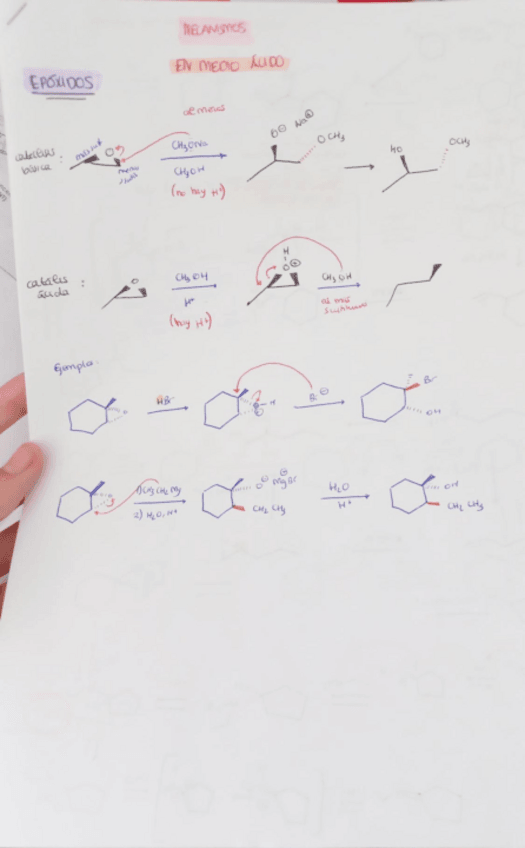 MECANISMOS
EN MEDIO ÁCIDO
EPÓXIDOS
al menos
catálisis básica :
más sust
O
menos sust
CH3ONa
CH3OH
(no hay H+)
O⊖ Na⊕
OCH3
HO
OCH3
catálisis ácida :
O
CH3OH
H+
(hay H+)
H
O⊕
CH3OH
al más
sustituido
Ejemplo:
O
HBr
H
Br⊖
Br
OH
1) CH3CH2Mg
2) H2O, H+
O⊖ ⊕MgBr
CH2 CH3
H2O
H+
OH
CH2 CH3